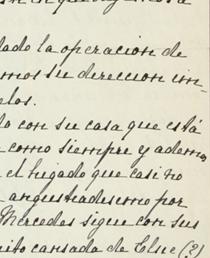 lado la operacion de
mos su dereccion im-
elos.
lo con su casa que está
como siempre y ademas
el higado que casi no
angustiadisemo por
Mercedes sigue con sus
ito cansada de Elne (?)